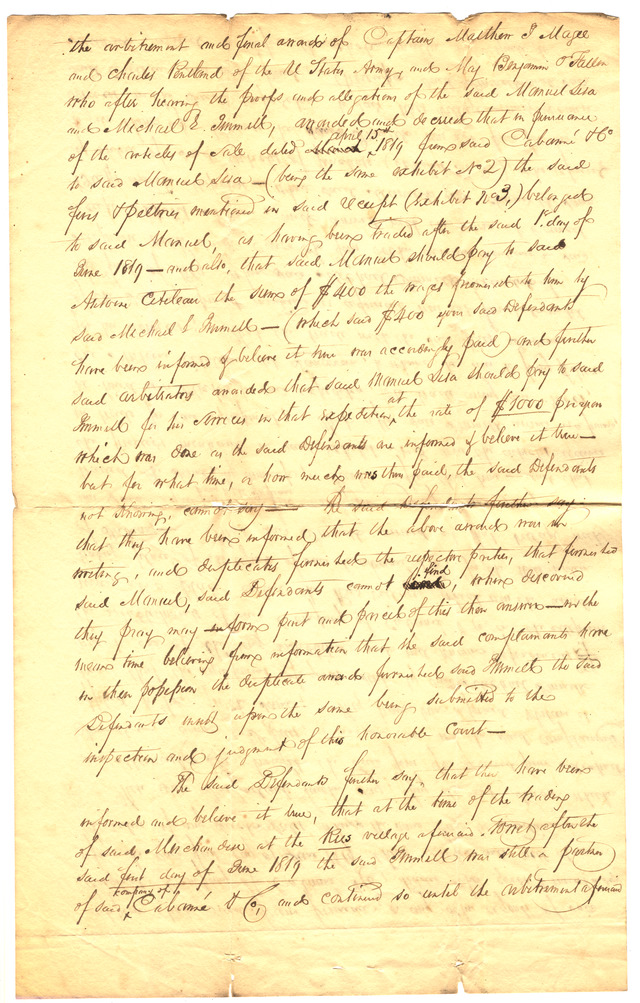 the arbitrement and final award of Captains Matthew J Magee
and Charles Pentland of the U States Army, and Maj Benjamin O'Fallon
who after hearing the proofs and allegations of the said Manuel Lisa
and Michael E. Immell, awarded and decreed that in pursuance
of the articles of Sale dated April 15th 1819 from said Cabanné & Co
to said Manuel Lisa — (being the same exhibit No 2) the said
furs & peltries mentioned in said receipt (exhibit No 3,) belonged
to said Manuel, as having been traded after the said 1st day of
June 1819 — and also, that said Manuel should pay to said
Antoine Citoleau the sum of $400 the wages promised to him by
said Michael E Immell — (which said $400 your said Defendants
have been informed & believe it true was accordingly paid) and further
said arbitrators awarded that said Manuel Lisa should pay to said
Immell for his services in that expedition at the rate of $1000 per year
which was done as the said Defendants are informed & believe it true —
but for what time, or how much was then paid, the said Defendants
not knowing, cannot say — The said further say
that they have been informed that the above award was in
writing, and duplicates furnished the respective parties, that furnished
said Manuel, said Defendants cannot find, when discovered
they pray may form part and parcel of this their answer — in the
mean time believing from information that the said complainants have
in their possession the duplicate award furnished said Immell the said
Defendants insist upon the same being submitted to the
inspection and judgment of this honorable Court —
The said Defendants further say, that they have been
informed and believe it true, that at the time of the trading
of said Merchandise at the Rus village aforesaid to wit, after the
said first day of June 1819 the said Immell was still a partner
of said company of Cabanné & Co, and continued so until the arbitrement aforesaid